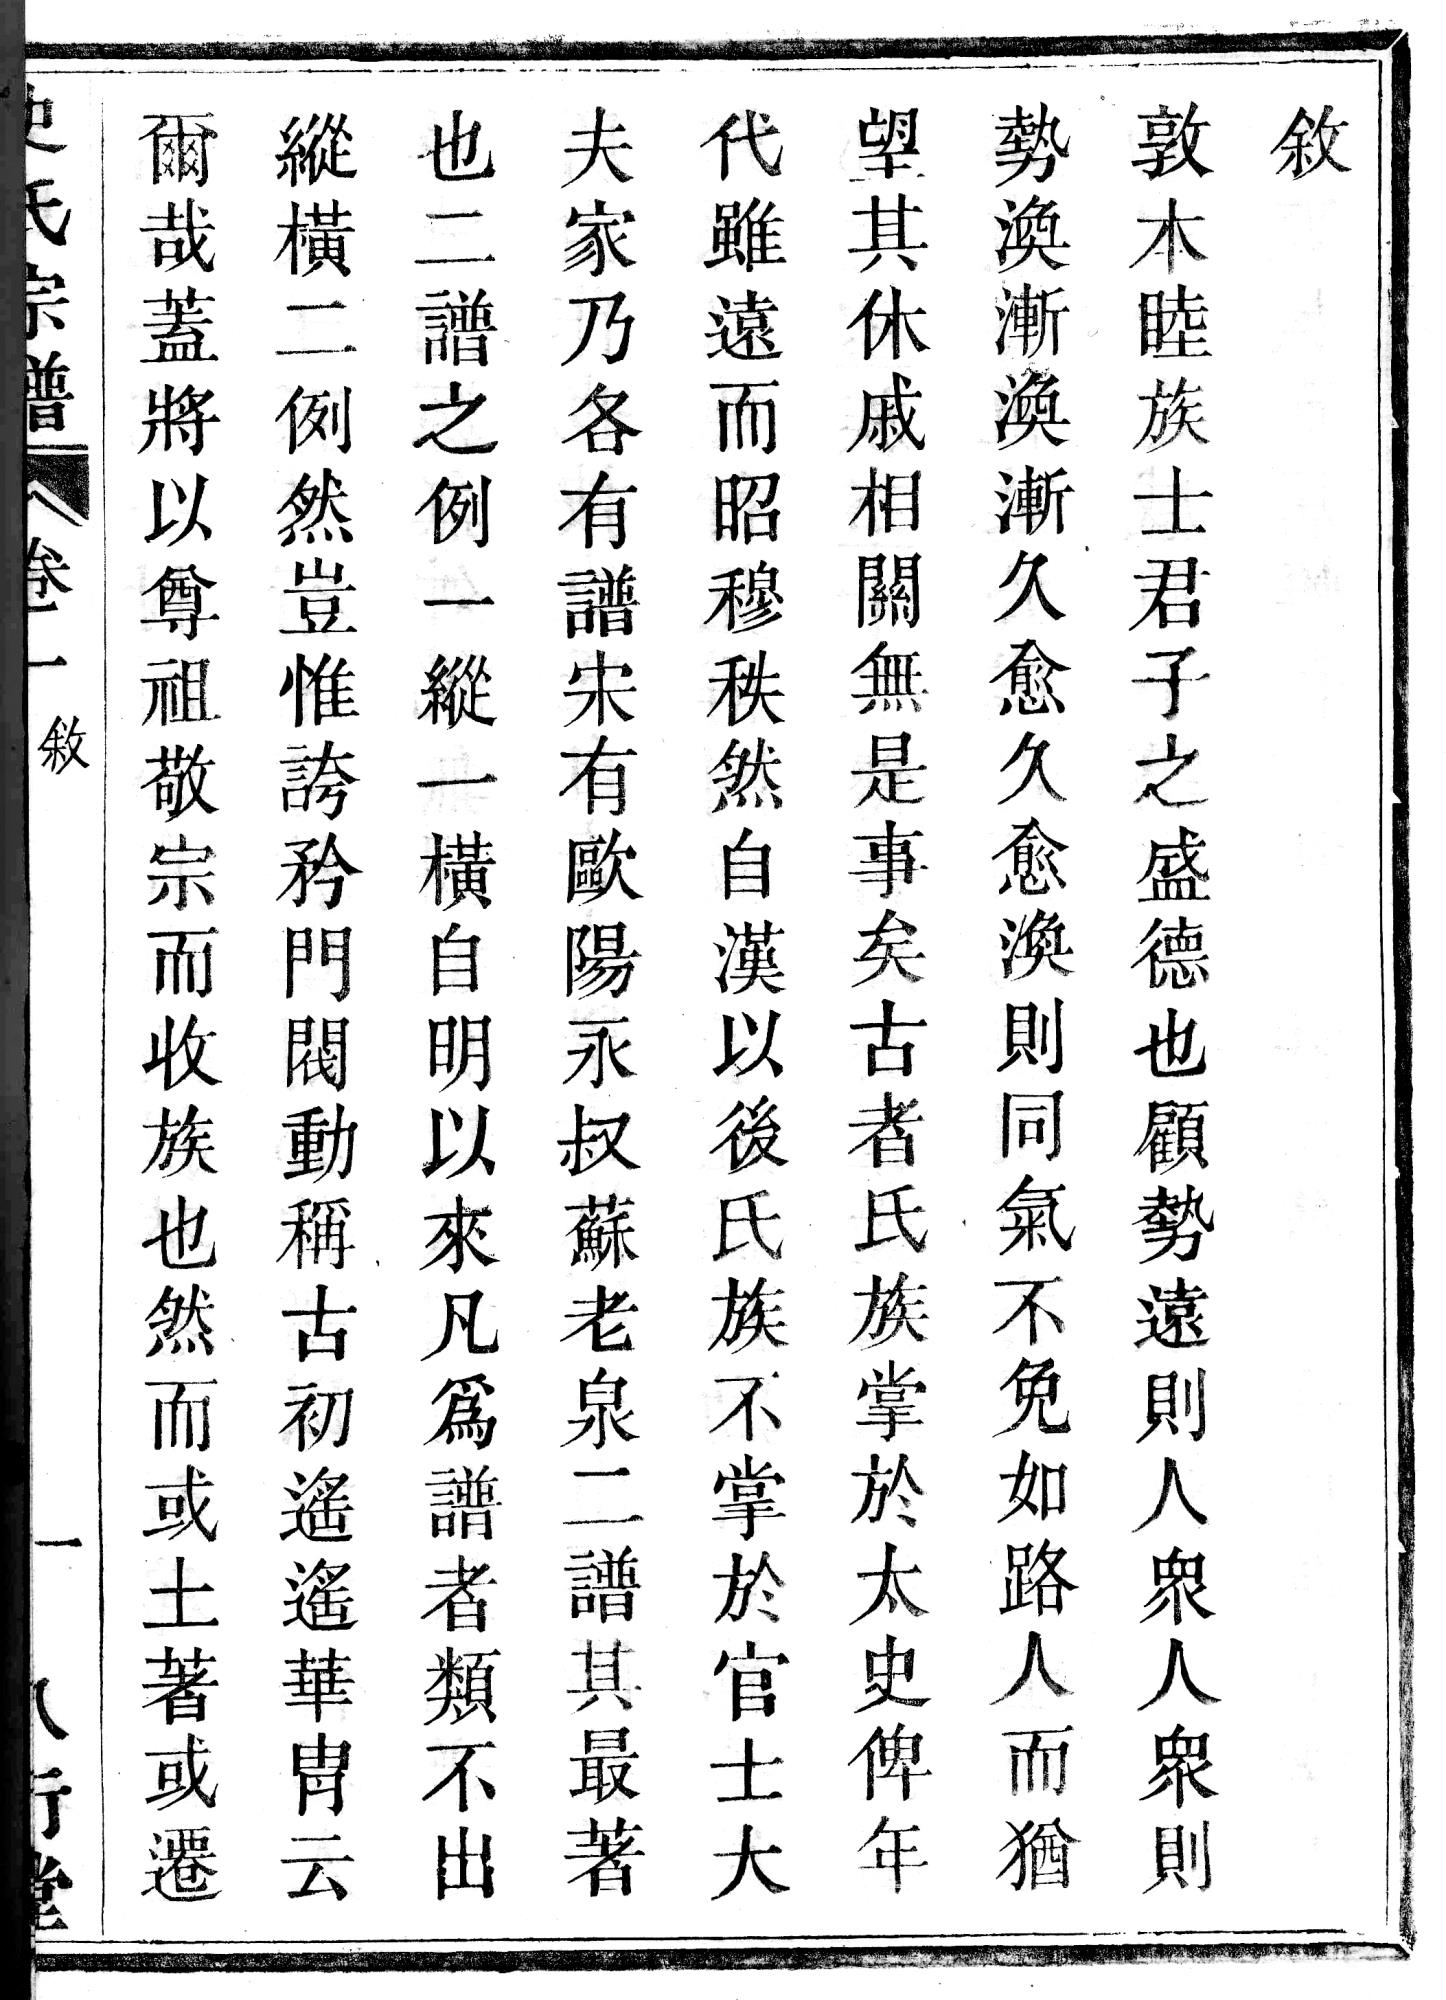 敘
敦本睦族士君子之盛德也顧勢遠則人衆人衆則
勢渙漸渙漸久愈久愈渙則同氣不免如路人而猶
望其休戚相關無是事矣古者氏族掌於太史俾年
代雖遠而昭穆秩然自漢以後氏族不掌於官士大
夫家乃各有譜宋有歐陽永叔蘇老泉二譜其最著
也二譜之例一縱一橫自明以來凡爲譜者類不出
縱橫二例然豈惟誇矜門閥動稱古初遙遙華胄云
爾哉蓋將以尊祖敬宗而收族也然而或土著或遷
史氏宗譜 卷一 敘 一 八行堂